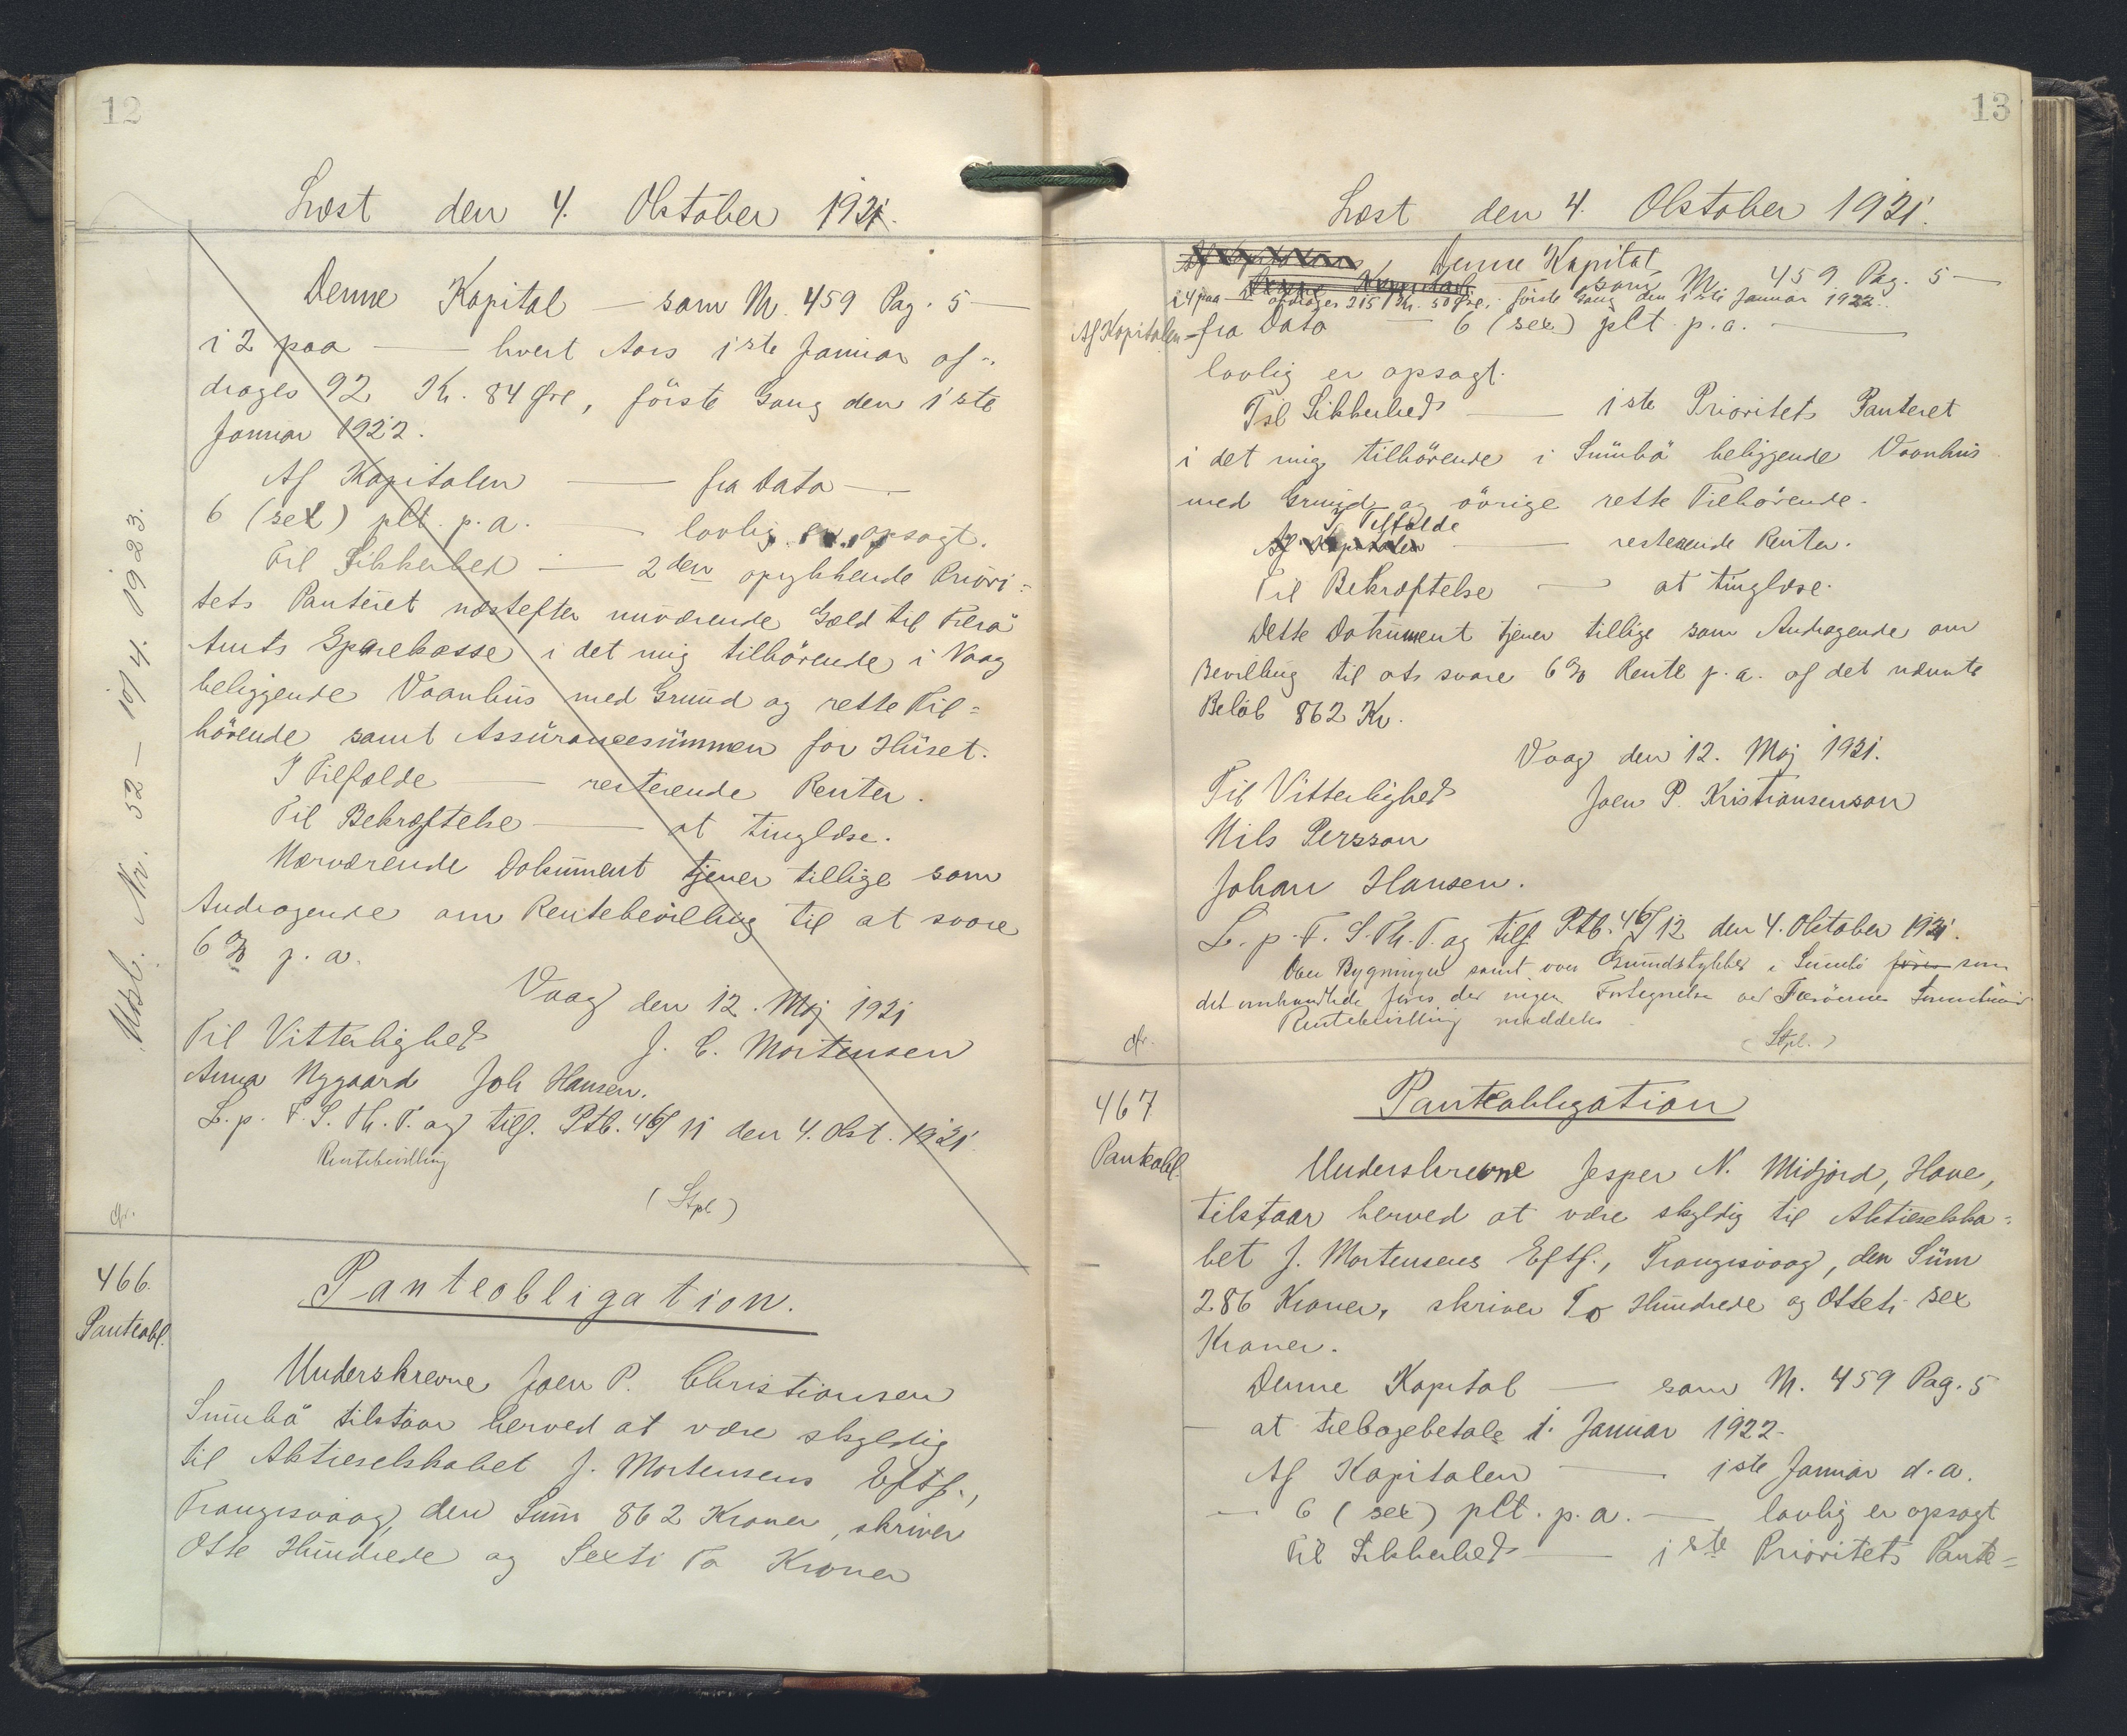 12
Læst den 4. Oktober 1921.
Denne Kapital — som Nr. 459 Pag. 5 —
i 2 paa — hvert Aars 1ste Januar af-
drages 92 Kr. 84 Øre, første Gang den 1ste
Januar 1922.
Af Kapitalen — fra Dato —
6 (sex) pCt. p. a. — lovlig er opsagt.
Til Sikkerhed — 2den oprykkende Priori-
tets Panteret næstefter nuværende Gæld til Færø
Amts Sparekasse i det mig tilhørende i Vaag
beliggende Vaanhus med Grund og rette Til-
hørende samt Assurancesummen for Huset.
I Tilfælde — resterende Renter.
Til Bekræftelse — at tinglæse.
Nærværende Dokument tjener tillige som
Andragende om Rentebevilling til at svare
6 % p. a.
Vaag den 12. Maj 1921
Til Vitterlighed J. C. Mortensen
Anna Nygaard Joh Hansen.
L. p. F. S. Th. P. og tilf. Ptb. 46/11 den 4. Okt. 1921.
Rentebevilling
(Stpl)
Udsl. Nr. 52 — 10/4. 1923.
466.
Panteobl.
Panteobligation.
Underskrevne Joen P. Christiansen
Sumbø tilstaar herved at være skyldig
til Aktieselskabet J. Mortensens Eftf.,
Trangisvaag, den Sum 862 Kroner, skriver
Otte Hundrede og Sexti To Kroner
13
Læst den 4. Oktober 1921.
Denne Kapital — som Nr. 459 Pag. 5 —
i 4 paa — afdrages 215 Kr. 50 Øre, første Gang den 1ste Januar 1922.
Af Kapitalen — fra Dato — 6 (sex) pCt. p. a. —
lovlig er opsagt.
Til Sikkerhed — 1ste Prioritets Panteret
i det mig tilhørende i Sumbø beliggende Vaanhus
med Grund og øvrige rette Tilhørende.
I Tilfælde
Af Kapitalen — resterende Renter.
Til Bekræftelse — at tinglæse.
Dette Dokument tjener tillige som Andragende om
Bevilling til at svare 6 % Rente p. a. af det nævnte
Beløb 862 Kr.
Vaag den 12. Maj 1921.
Til Vitterlighed Joen P. Kristiansenson
Nils Persson
Johan Hansen.
L. p. F. S. Th. P. og tilf. Ptb. 46/12 den 4. Oktober 1921.
Over Bygninger samt over Grundstykker i Sumbø føres som
det omhandlede føres der ingen Fortegnelse ved Færøernes
Rentebevilling meddeles
(Stpl.)
467
Panteobl.
Panteobligation
Underskrevne Jesper N. Midjord, Hove,
tilstaar herved at være skyldig til Aktieselska-
bet J. Mortensens Eftf., Trangisvaag, den Sum
286 Kroner, skriver To Hundrede og Otteti sex
Kroner.
Denne Kapital — som Nr. 459 Pag. 5
— at tilbagebetale 1. Januar 1922.
Af Kapitalen — 1ste Januar d. a.
— 6 (sex) pCt. p. a. — lovlig er opsagt
Til Sikkerhed — 1ste Prioritets Pante-